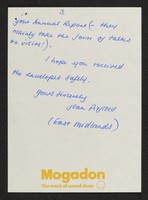 3
your Annual Report (- they
mainly take the form of talks
or visits!).
I hope you received
the envelopes safely.
Yours sincerely
Jean
(East Midlands)
Mogadon